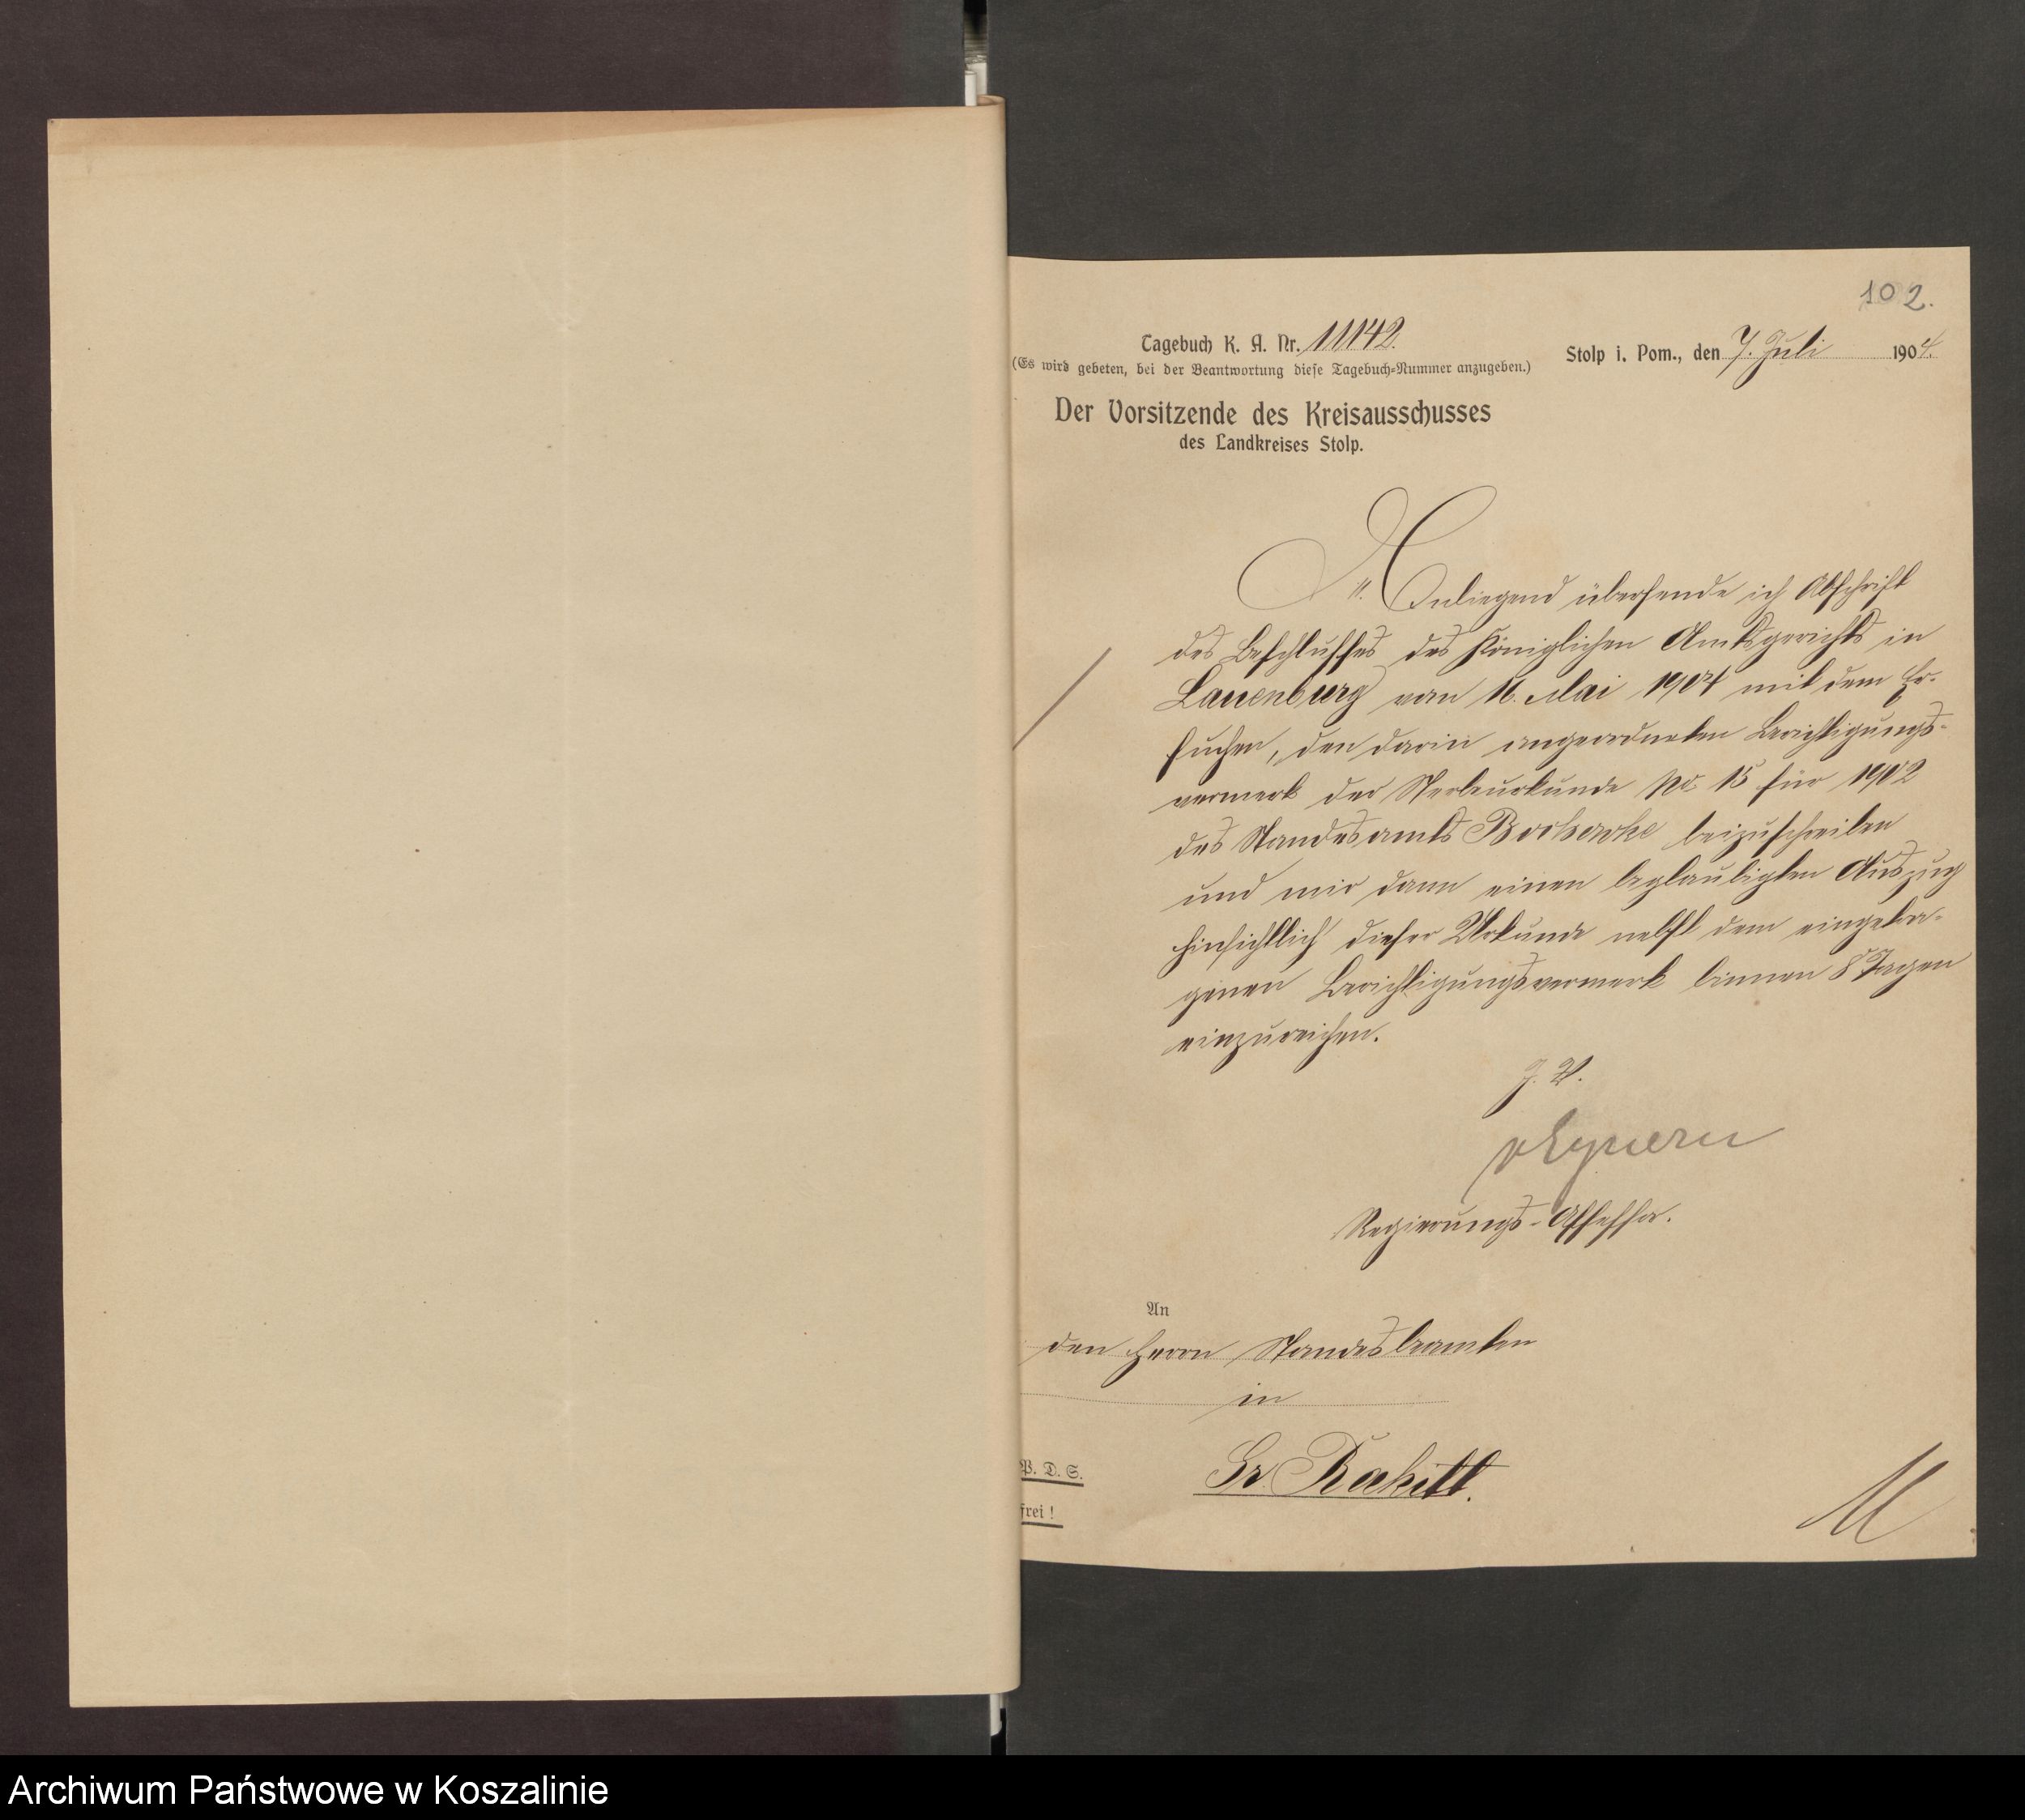 102.
Tagebuch K. A. Nr. 11142.
(Es wird gebeten, bei der Beantwortung diese Tagebuch-Nummer anzugeben.)
Stolp i. Pom., den 7. Juli 1904.
Der Vorsitzende des Kreisausschusses
des Landkreises Stolp.
Anliegend übersende ich Abschrift
des Beschlusses des Königlichen Amtsgerichts in
Lauenburg vom 16. Mai 1904 mit dem Er-
suchen, den darin angeordneten Berichtigungs-
vermerk der Sterbeurkunde No 15 für 1902
des Standesamts beizuschreiben
und mir dann einen beglaubigten Auszug
hinsichtlich dieser Urkunde nebst dem eingetra-
genen Berichtigungsvermerk binnen 8 Tagen
einzureichen.
J. V.
vEynern
Regierungs-Assessor.
An
den Herrn Standesbeamten
in
Gr. Rakitt.
P. D. S.
frei!
Archiwum Państwowe w Koszalinie